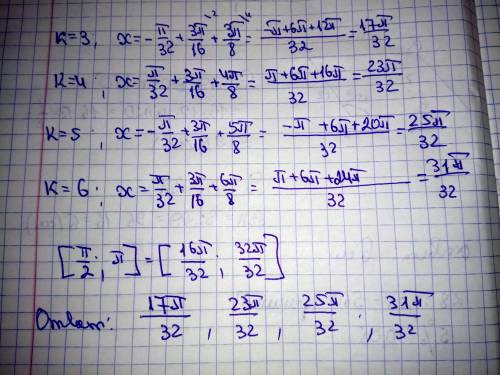 K=3, x=-π/32+3π/16+3π/8=(-π+6π+12π)/32=17π/32
K=4, x=π/32+3π/16+4π/8=(π+6π+16π)/32=23π/32
K=5, x=-π/32+3π/16+5π/8=(-π+6π+20π)/32=25π/32
K=6; x=π/32+3π/16+6π/8=(π+6π+24π)/32=31π/32
[π/2; π]=[16π/32; 32π/32]
Ответ: 17π/32, 23π/32, 25π/32, 31π/32